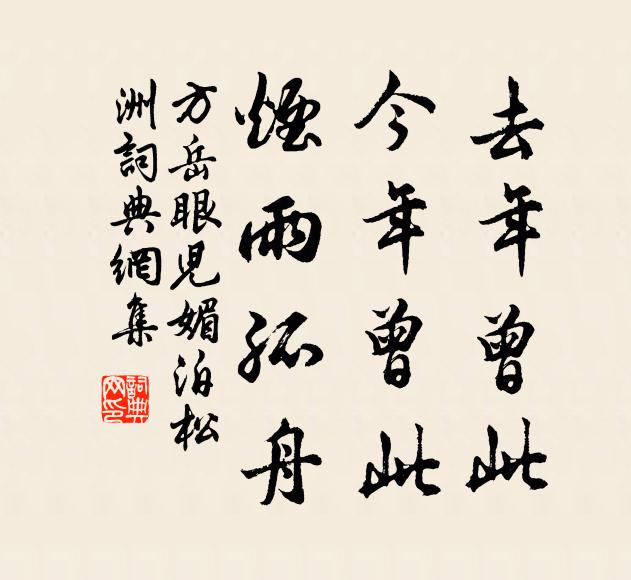 去年曾此
今年曾此
煙雨孤舟
方岳眼兒媚泊松
洲詞典網集
詞典
网印